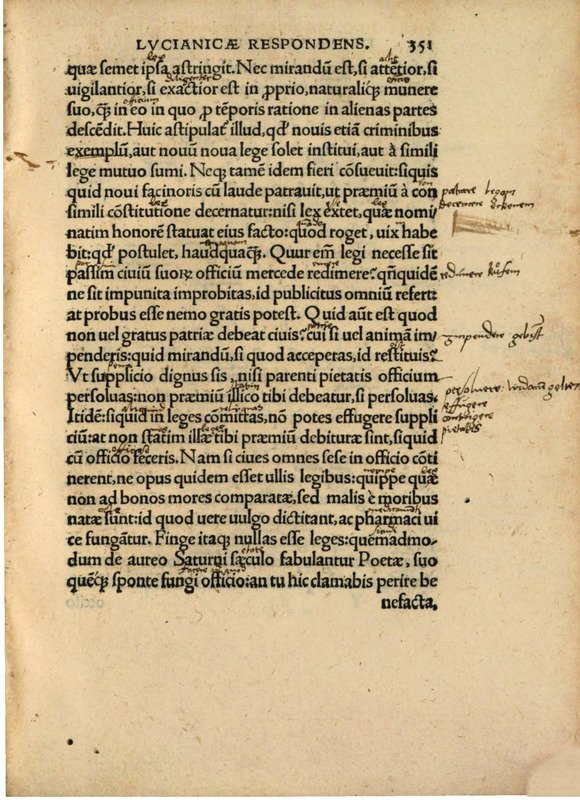 LVCIANICÆ RESPONDENS. 351
quæ semet ipsa astringit. Nec mirandū est, si attētior, si
uigilantior, si exactior est in ꝓprio, naturaliq; munere
suo, q̃; in eo in quo ꝓ tēporis ratione in alienas partes
descēdit. Huic astipulat᷑ illud, qd' nouis etiā criminibus
exemplū, aut nouū noua lege solet institui, aut à simili
lege mutuo sumi. Neq; tamē idem fieri cōsueuit: siquis
quid noui facinoris cū laude patrauit, ut præmiū à con
simili cōstitutione decernatur: nisi lex extet, quæ nomi/
natim honorē statuat eius facto: quod roget, uix habe
bit: qd' postulet, haudquaq̃;. Quur em̄ legi necesse sit
passim ciuiū suorꝝ officiū mercede redimere? qñquidē
ne sit impunita improbitas, id publicitus omniū refert:
at probus esse nemo gratis potest. Quid aūt est quod
non uel gratus patriæ debeat ciuis? cui si uel animā im/
penderis: quid mirandū, si quod acceperas, id restituis?
Vt supplicio dignus sis, nisi parenti pietatis officium
persoluas: non præmium illico tibi debeatur, si persoluas.
Itidē: siquid in leges cōmittas, nō potes effugere suppli
ciū: at non statim illæ tibi præmiū debituræ sint, siquid
cū officio feceris. Nam si ciues omnes sese in officio cōti
nerent, ne opus quidem esset ullis legibus: quippe quæ
non ad bonos mores comparatæ, sed malis è moribus
natæ sunt: id quod uere uulgo dictitant, ac pharmaci ui
ce fungātur. Finge itaq; nullas esse leges: quemadmo/
dum de aureo Saturni sæculo fabulantur Poetæ, suo
quēq; sponte fungi officio: an tu hic clamabis perire be
nefacta,
patrare
decernere
redimere
impendere
persoluere
effugere
pietatis